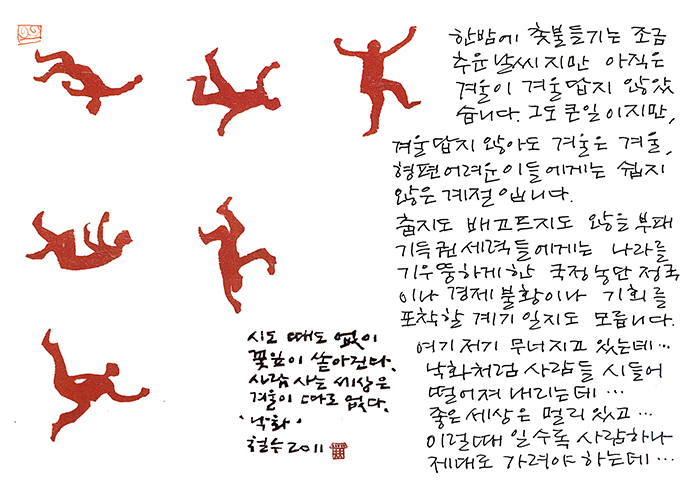 한밤에 촛불들기는 조금
추운 날씨지만 아직은
겨울이 겨울답지 않았
습니다. 그도 큰일이지만,
겨울답지 않아도 겨울은 겨울,
형편 어려운 이들에게는 쉽지
않은 계절입니다.
춥지도 배고프지도 않을 부패
기득권세력들에게는 나라를
기우뚱하게 한 국정농단 정국
이나 경제불황이나 기회를
포착할 계기일지도 모릅니다.
여기저기 무너지고 있는데…
낙화처럼 사람들 시들어
떨어져 내리는데…
좋은 세상은 멀리 있고…
이럴때 일수록 사람하나
제대로 가려야 하는데…
시도 때도 없이
꽃잎이 쏟아진다.
사람 사는 세상은
겨울이 따로 없다.
'낙화'
철수 2011